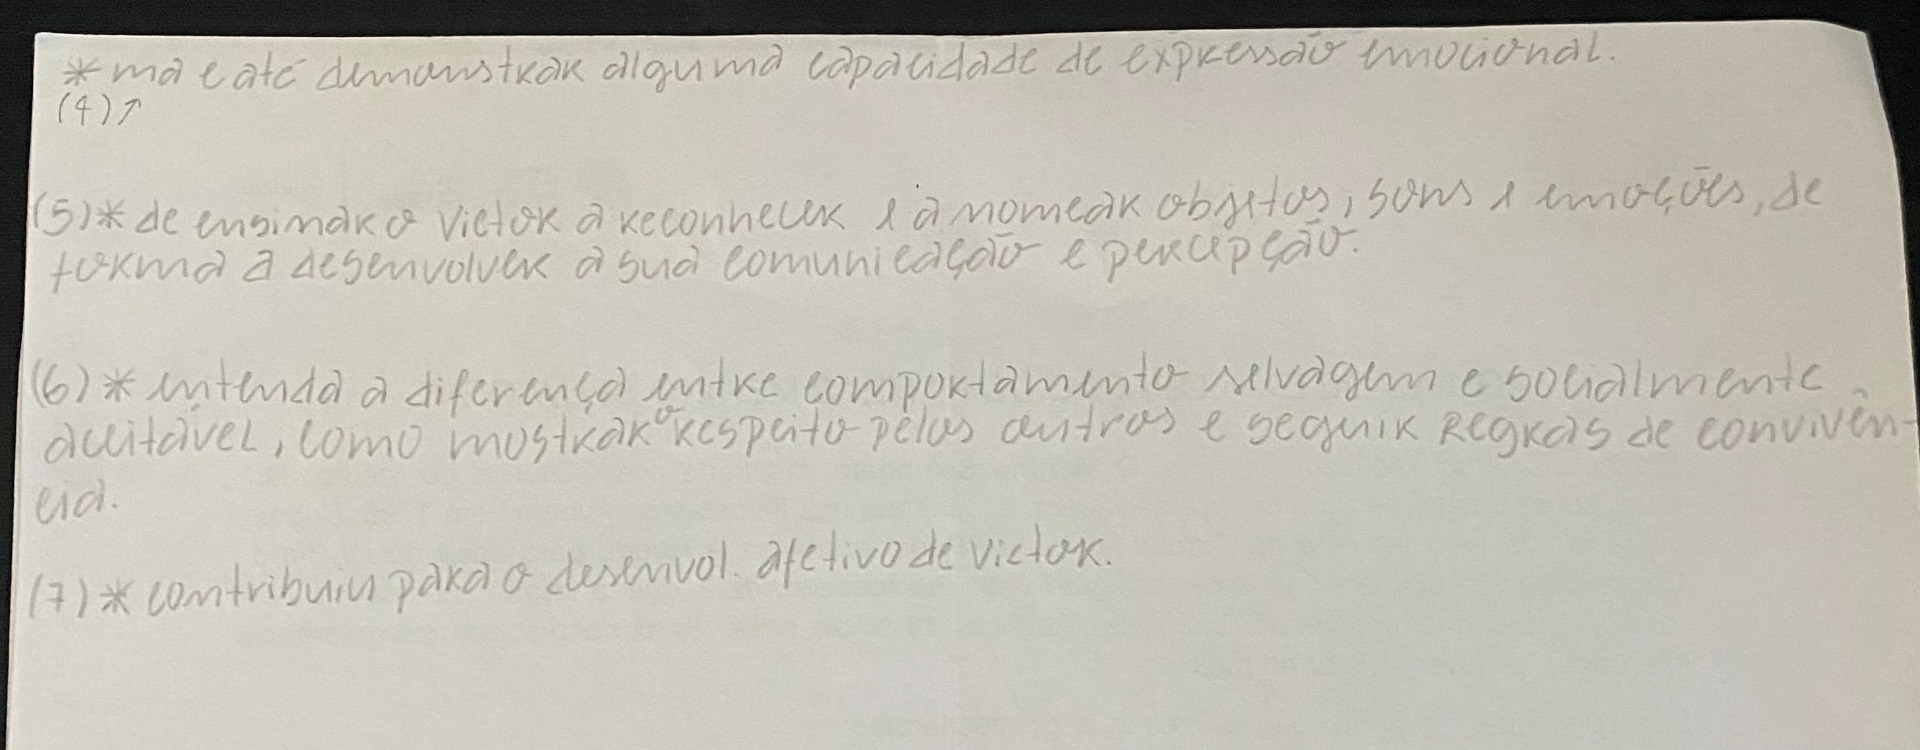 * ma e até demonstrar alguma capacidade de expressão emocional.
(4)↑
(5)* de ensinar o Victor a reconhecer e a nomear objetos, sons e emoções, de
forma a desenvolver a sua comunicação e percepção.
(6)* entenda a diferença entre comportamento selvagem e socialmente
aceitável, como mostrar o respeito pelos outros e seguir regras de convivên-
cia.
(7)* contribuiu para o desenvol. afetivo de victor.